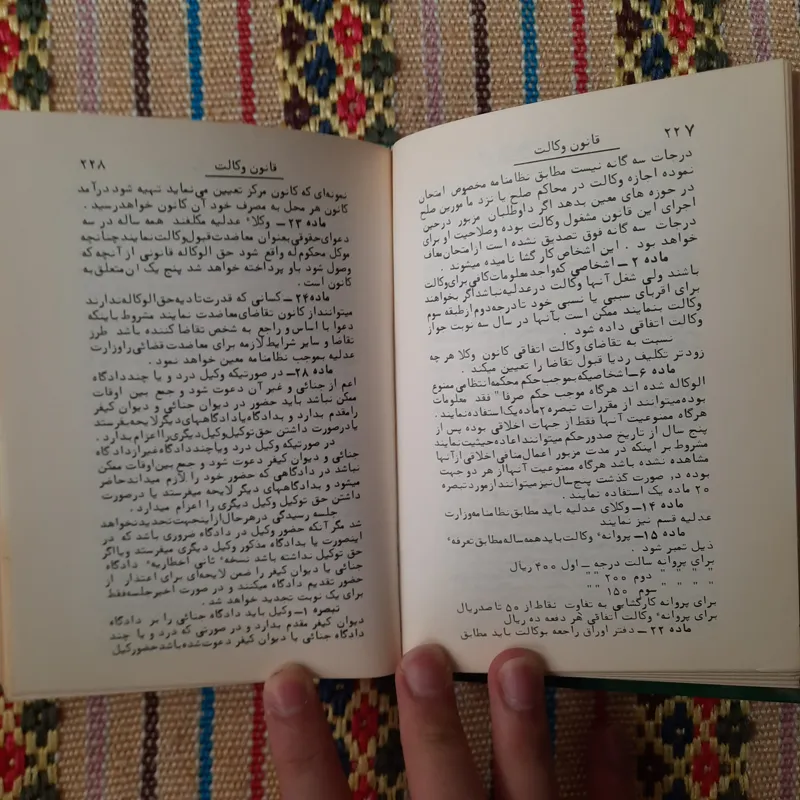 ۲۲۷
قانون وکالت
درجات سه گانه نیست مطابق نظامنامه مخصوص امتحان
نموده اجازه وکالت در محاکم صلح یا نزد ما مورین صلح
در حوزه های معین بدهد اگر داوطلبان مزبور درحین
اجرای این قانون مشغول وکالت بوده وصلاحیت او برای
درجات سه گانه فوق تصدیق نشده است ازامتحان معاف
خواهد بود . این اشخاص کار گشا نامیده میشوند .
ماده ۲ ـ اشخاصی که واجد معلومات کافی برای وکالت
باشند ولی شغل آنها وکالت در عدلیه نباشد اگر بخواهند
برای اقربای سببی یا نسبی خود تادرجه دوم از طبقه سوم
وکالت بنمایند ممکن است بآنها در سال سه نوبت جواز
وکالت اتفاقی داده شود .
نسبت به تقاضای وکالت اتفاقی کانون وکلا هر چه
زودتر تکلیف ردیا قبول تقاضا را تعیین میکند .
ماده ۶ـ اشخاصیکه بموجب حکم محکمه انتظامی ممنوع
الوکاله شده اند هرگاه موجب حکم صرفا" فقد معلومات
بوده میتوانند از مقررات تبصره ۲ ماده یک استفاده نمایند .
هرگاه ممنوعیت آنها فقط از جهات اخلاقی بوده پس از
پنج سال از تاریخ صدور حکم میتوانند اعاده حیثیت نمایند
مشروط بر اینکه در مدت مزبور اعمال منافی اخلاقی از آنها
مشاهده نشده باشد هرگاه ممنوعیت آنها از هر دو جهت
بوده در صورت گذشت پنج سال نیز میتوانند از مورد تبصره
۲۰ ماده یک استفاده نمایند .
ماده ۱۴ـ وکلای عدلیه باید مطابق نظامنامه وزارت
عدلیه قسم نیز نمایند
ماده ۱۵ـ پروانه ٴ وکالت باید همه ساله مطابق تعرفه ٴ
ذیل تمبر شود .
برای پروانه سالت درجه ـ اول ۴۰۰ ریال
" " " " دوم ۲۰۰ " "
" " " " سوم ۱۵۰ " "
برای پروانه کارگشایی به تفاوت نقاط از ۵۰ تا صد ریال
برای پروانه ٴ وکالت اتفاقی هر دفعه ده ریال
ماده ۲۲ ـ دفتر اوراق راجعه بوکالت باید مطابق
۲۲۸
قانون وکالت
نمونه‌ای که کانون مرکز تعیین می نماید تهیه شود درآمد
کانون هر محل به مصرف خود آن کانون خواهد رسید .
ماده ۲۳ ـ وکلا ٴ عدلیه مکلفند همه ساله در سه
دعوای حقوقی بعنوان معاضدت قبول وکالت نمایند چنانچه
موکل محکوم له واقع شود حق الوکاله قانونی از آنچه که
وصول شود باو پرداخته خواهد شد پنج یک آن متعلق به
کانون است .
ماده ۲۴ ـ کسانی که قدرت تادیه حق الوکاله ندارند
میتوانند از کانون تقاضای معاضدت نمایند مشروط باینکه
دعوا با اساس و راجع به شخص تقاضا کننده باشد طرز
تقاضا و سایر شرایط لازمه برای معاضدت قضائی را وزارت
عدلیه بموجب نظامنامه معین خواهد نمود .
ماده ۲۸ ـ در صورتیکه وکیل درد و یا چند دادگاه
اعم از جنائی و غیر آن دعوت شود و جمع بین اوقات
ممکن نباشد باید حضور در دیوان جنائی و دیوان کیفر
را مقدم بدارد و بدادگاه یا دادگاههای دیگر لایحه بفرستد
یا درصورت داشتن حق توکیل وکیل دیگری را اعزام بدارد .
در صورتیکه وکیل درد ویا چند دادگاه غیر از دادگاه
جنائی و دیوان کیفر دعوت شود و جمع بین اوقات ممکن
نباشد در دادگاهی که حضور خود را لازم میداند حاضر
میشود و بدادگاههای دیگر لایحه میفرستد یا درصورت
داشتن حق توکیل وکیل دیگری را اعزام میدارد .
جلسه رسیدگی در هر حال از اینجهت تجدید نخواهد
شد مگر آنکه حضور وکیل در دادگاه ضروری باشد که در
اینصورت یا بدادگاه مذکور وکیل دیگری میفرستد ویا اگر
حق توکیل نداشته باشد نسخه ٴ ثانی اخطاریه ٴ دادگاه
جنائی یا دیوان کیفر را ضمن لایحه‌ای برای اعتذار از
حضور تقدیم دادگاه میکند و در صورت اخیر جلسه فقط
برای یک نوبت تجدید خواهد شد .
تبصره ۱ ـ وکیل باید دادگاه جنائی را بر دادگاه
دیوان کیفر مقدم بدارد و در صورتی که درد و یا چند
دادگاه جنائی یا دیوان کیفر دعوت شده باشد حضور کیل